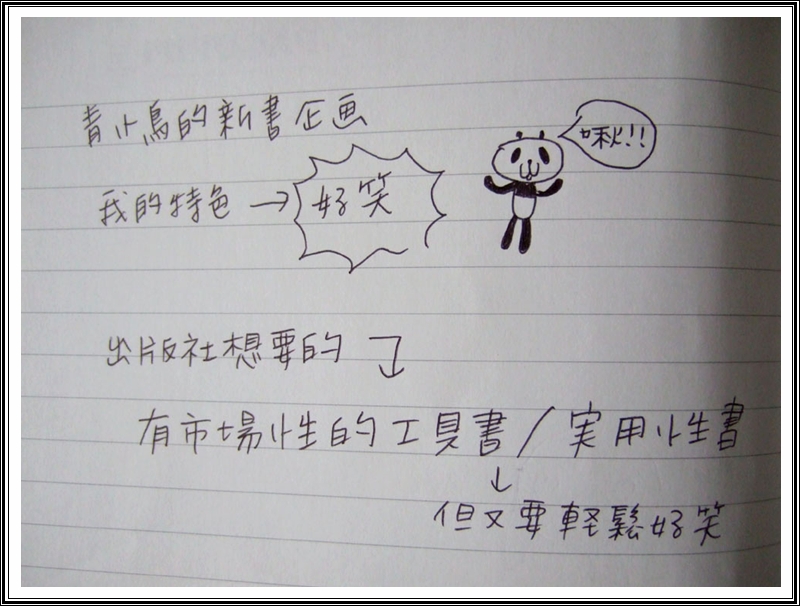 青小鳥的新書企画
啾!!
我的特色→好笑
出版社想要的
有市場性的工具書/実用性書
↓
但又要軽鬆好笑